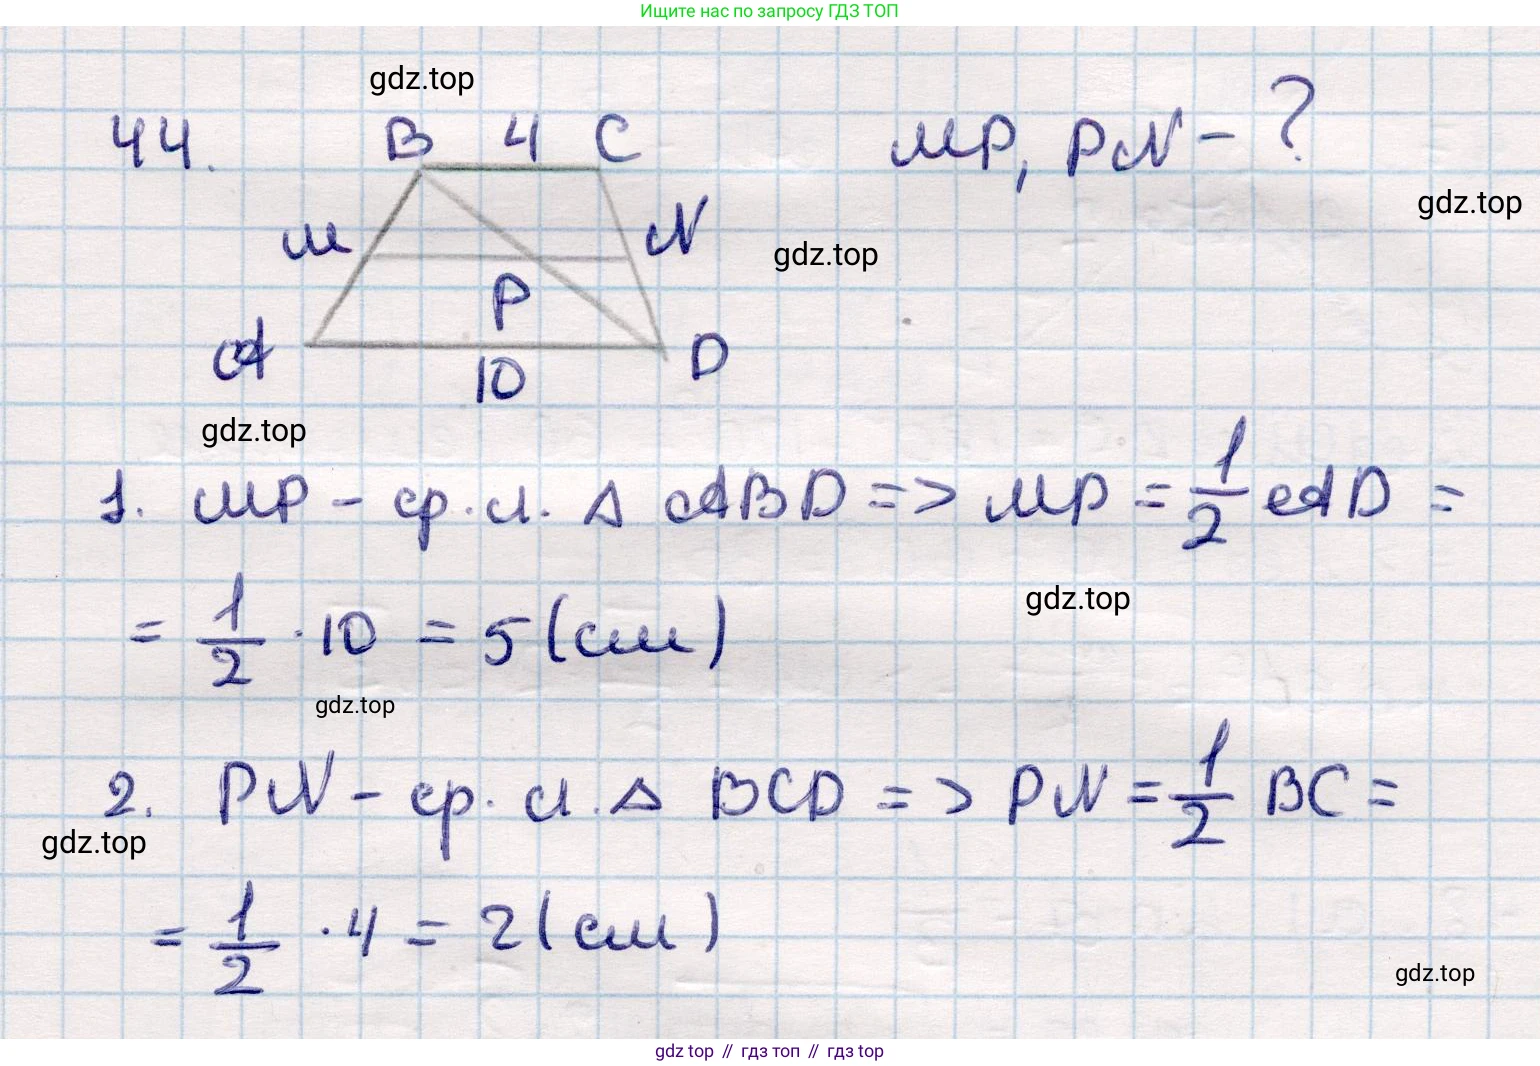 Ищите нас по запросу ГДЗ ТОП
gdz.top
44. B 4 C MP, PN - ?
gdz.top
M N
gdz.top
P
A D
10
gdz.top
1. MP - ср. л. Δ ABD => MP = 1/2 AD =
= 1/2 · 10 = 5 (см)
gdz.top
gdz.top
2. PN - ср. л. Δ BCD => PN = 1/2 BC =
gdz.top
= 1/2 · 4 = 2 (см)
gdz.top
gdz top // гдз топ // гдз.top